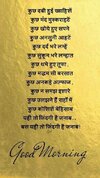 कुछ दबी हुई ख़्वाहिशें
कुछ मंद मुस्कुराहटें
कुछ खोये हुए सपने
कुछ अनसुनी आहटें
कुछ दर्द भरे लम्हे
कुछ सुकून भरे लम्हात
कुछ थमे हुए तूफ़ाँ
कुछ मद्धम सी बरसात
कुछ अनकहे अल्फ़ाज़
कुछ ना समझ इशारे
कुछ उलझनें हैं राहों में
कुछ कोशिशें बेहिसाब
यही तो ज़िंदगी है जनाब..
बस यही तो ज़िंदगी है जनाब..
Good Morning